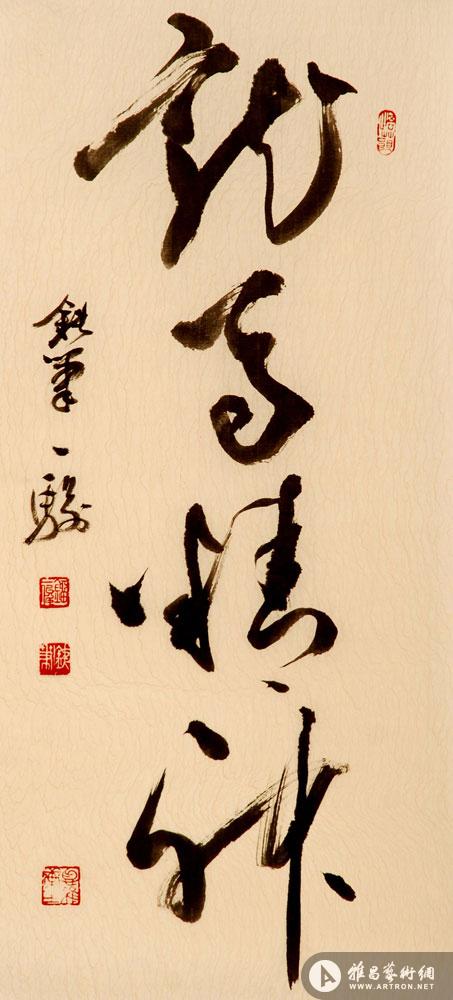 龙马精神
铁笔一骏
雅昌藝術網
WWW.ARTRON.NET